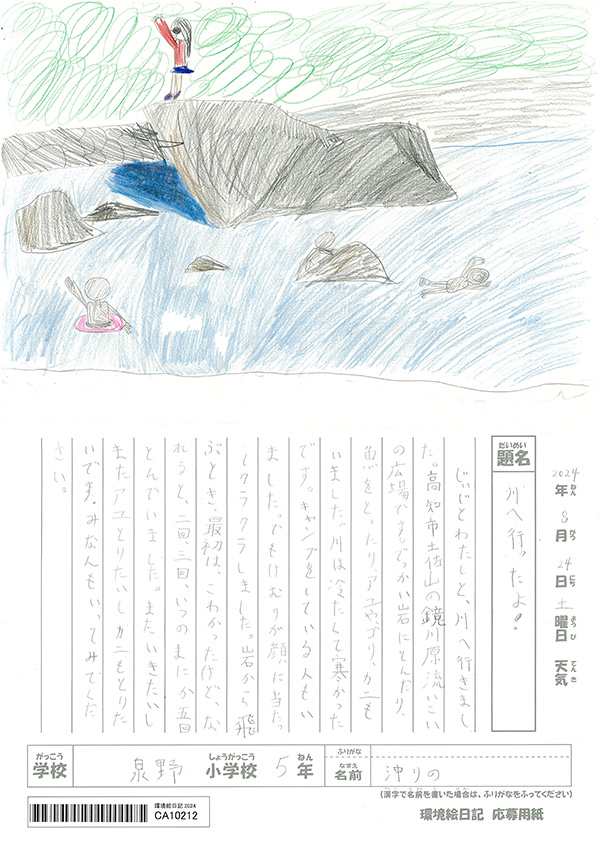 2024年8月24日土曜日 天気
ねん
がつ
にち
ようび
てんき
だいめい
題名
川へ行ったよ!
じいじとわたしと、川へ行きまし
た。高知市土佐山の鏡川原流いこい
の広場です。でっかい岩にとんだり、
魚をとったり、アユや、ゴリ、カニも
いました。川は冷たくて寒かった
です。キャンプをしている人もい
ました。でもけむりが顔に当たっ
てクラクラしました。岩から飛
ぶとき、最初は、こわかったけど、な
れると、二回、三回、いつのまにか五回
とんでいました。またいきたいし
またアユとりたいしカニもとりた
いです。みなんもいってみてくだ
さい。
がっこう
学校
泉野
しょうがっこう
小学校
5
ねん
年
ふりがな
なまえ
名前
沖りの
(漢字で名前を書いた場合は、ふりがなをふってください)
環境絵日記 2024
CA10212
環境絵日記 応募用紙